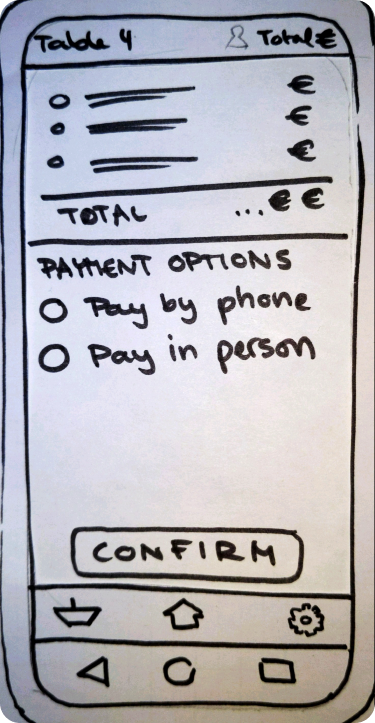 Table 4 Total €
€
€
€
TOTAL ... € €
PAYMENT OPTIONS
Pay by phone
Pay in person
CONFIRM